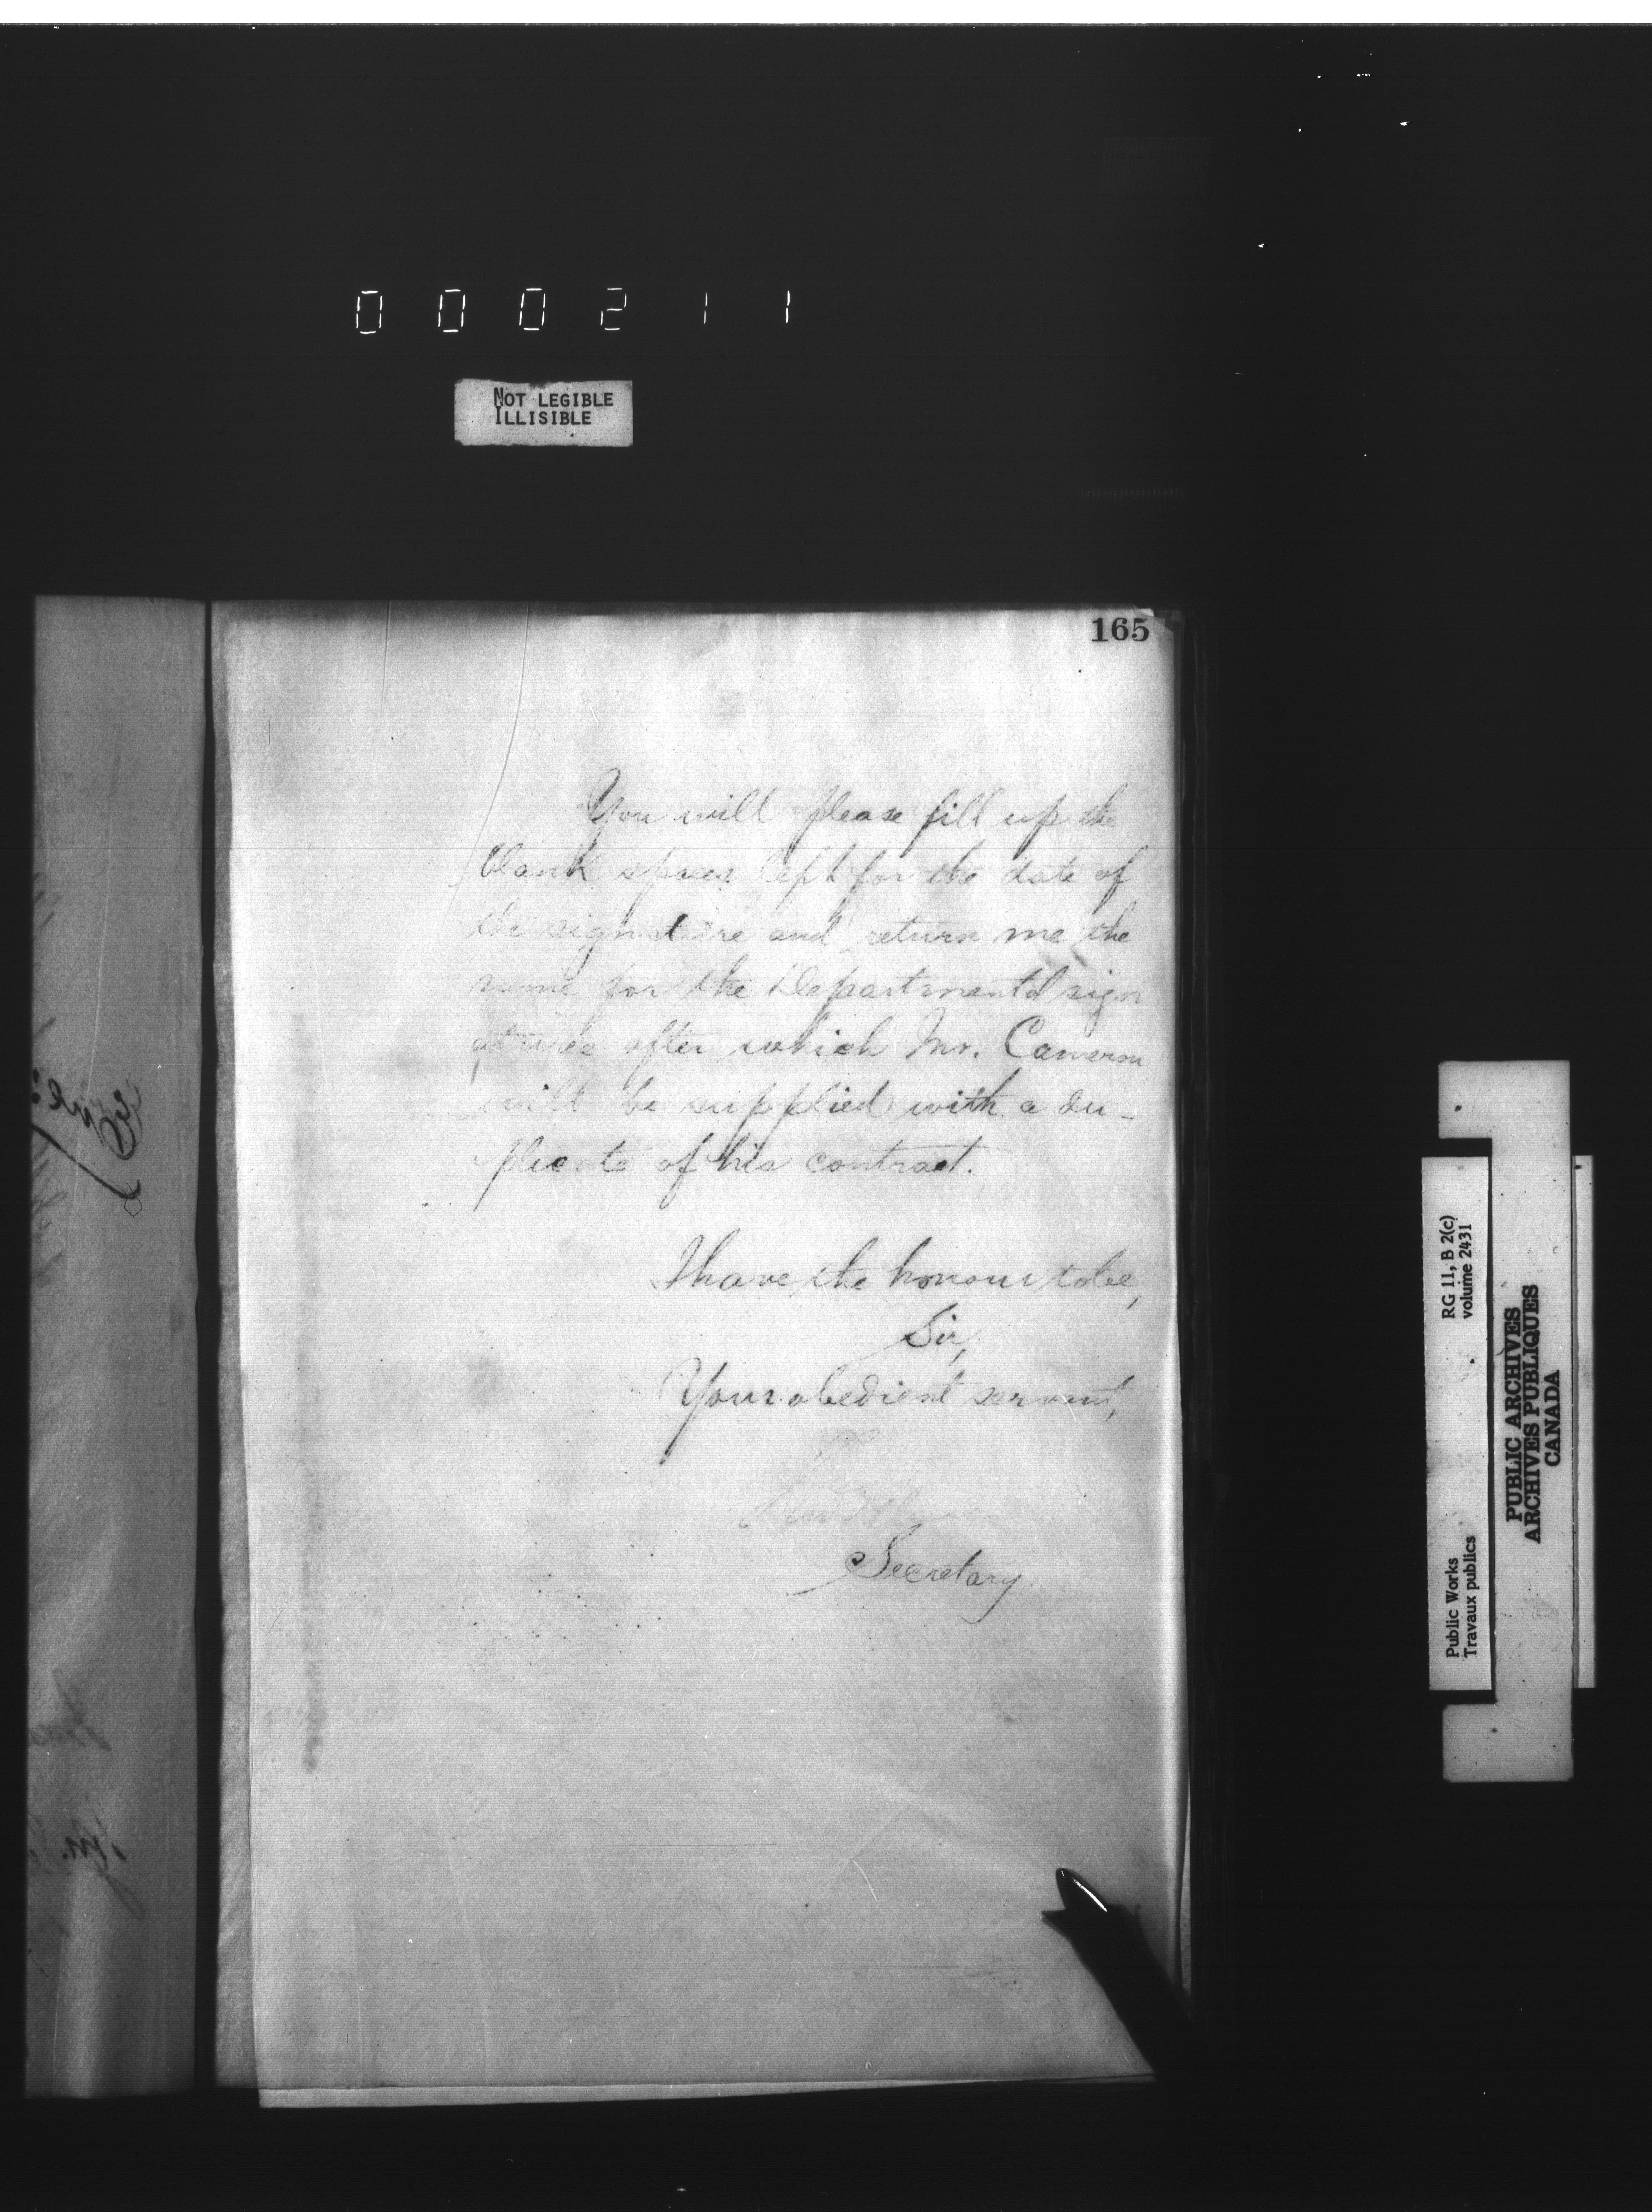 000211
NOT LEGIBLE
ILLISIBLE
165
You will please fill up the
blank spaces left for the date of
the signature and return me the
same for the Departmental sign
atures after which Mr. Cameron
will be supplied with a du-
plicate of his contract.
I have the honour to be,
Sir,
Your obedient servant,
Secretary
RG 11, B 2(c)
volume 2431
Public Works
Travaux publics
PUBLIC ARCHIVES
ARCHIVES PUBLIQUES
CANADA